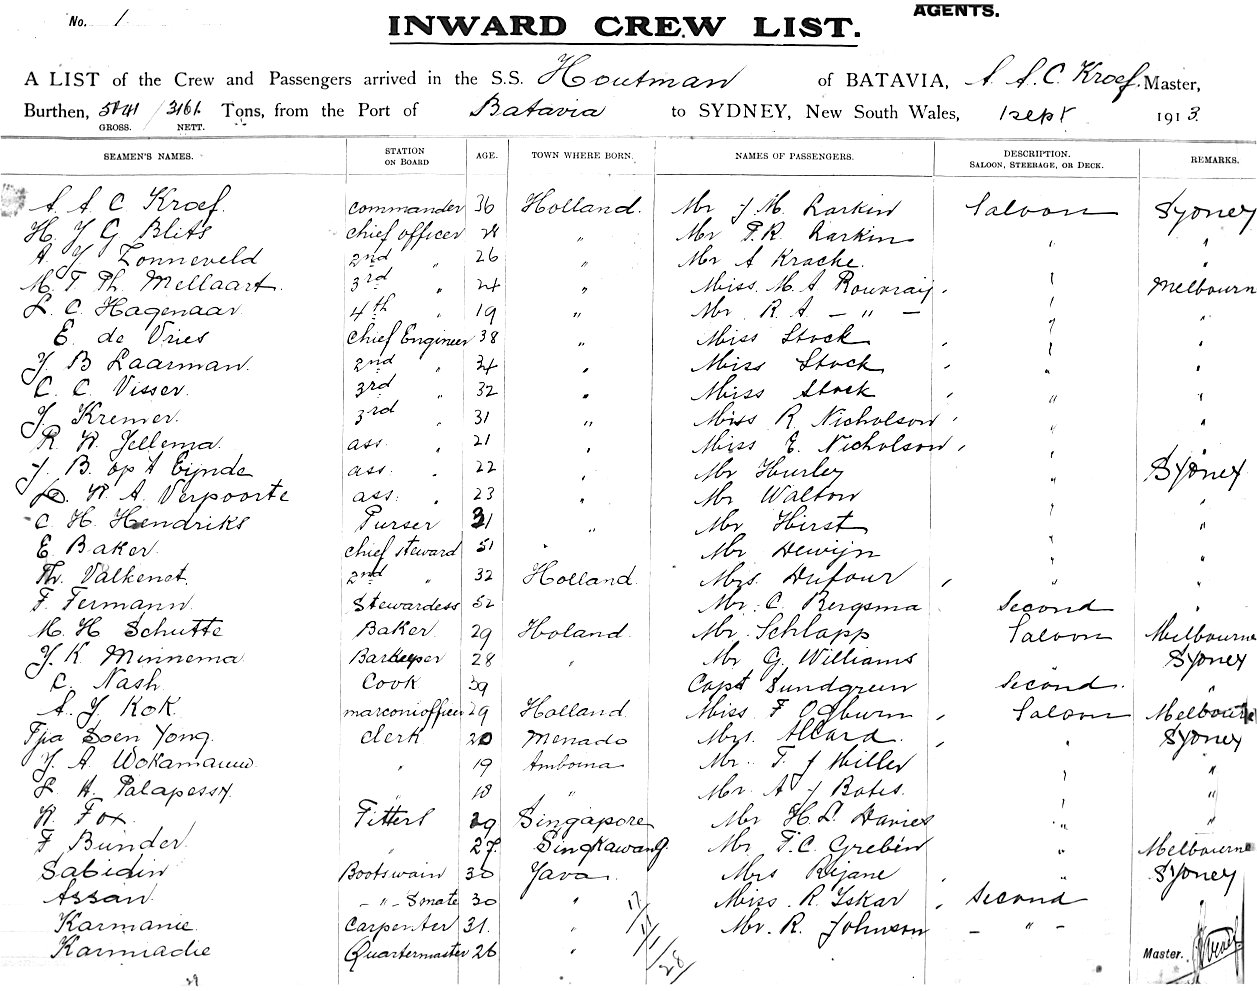 AGENTS.
No. 1
INWARD CREW LIST.
A LIST of the Crew and Passengers arrived in the S.S. Houtman of BATAVIA, A. A. C. Kroef, Master,
Burthen, 5041 / 3161. Tons, from the Port of Batavia to SYDNEY, New South Wales, 1 Sept 1913.
GROSS. NETT.
SEAMEN'S NAMES. STATION ON BOARD AGE. TOWN WHERE BORN. NAMES OF PASSENGERS. DESCRIPTION. SALOON, STEERAGE, OR DECK. REMARKS.
A. A C Kroef. commander 36 Holland. Mr J M. Larkin Saloon Sydney
H. J G Blits chief officer Mr T. R. Larkin " "
A J Zonneveld 2nd " 26 " Mr A Kracke. " "
M. T Th. Mellaart. 3rd " 24 " Miss. M. A Rouvray. " Melbourn
L. C. Hagenaar 4th " 19 " Mr. R A - " - " "
E. de Vries chief Engineer 38 " Miss Stock " "
J. B Laarman. 2nd 34 " Miss Stock " "
C. C. Visser. 3rd " 32 " Miss Stock " "
J. Kremer. 3rd " 31 " Miss R Nicholson " "
R. W. Jellema. ass. " 21 " Miss E. Nicholson " "
J. B. op 't Eijnde ass. " 22 " Mr Hurley " Sydney
W. A. Verpoorte ass. " 23 " Mr Walton " "
C H. Hendriks Purser 31 " Mr Hirst " "
E. Baker. chief steward 51 " Mr Dewijn " "
Th. Valkenet. 2nd " 32 Holland. Mrs. Dufour " "
F. Fermann. Stewardess 52 Mr. C. Bergsma Second "
M. H Schutte Baker. 29 Holand. Mr. Schlapp Saloon Melbourne
J. K. Minnema Barkeeper 28 " Mr G. Williams Sydney
C. Nash. Cook 39 Capt Sundgren Second. "
A. J. Kok. marconiofficer 29 Holland Miss F Ogburn Saloon Melbourne
Tjia Soen Yong. clerk 20 Menado Mrs. Allard. " Sydney
J. A. " 19 Amboina Mr. F. J Miller " "
L. H. Palapessy. 18 " Mr. A J Bates. " "
W. Fox. Fitters 29 Singapore Mr H. L. Davies " "
F Bunder. " 27. Singkawang Mr. F. C. Greben " Melbourne
Sabidin Bootswain 30 Java. Mrs Rejane " Sydney
Assan. - " - Smate 30 " Miss. R. Iskar Second
Karmanie. Carpenter 31. " Mr. R. Johnson - " -
Karmadie Quartermaster 26 " Master.
17/11/28